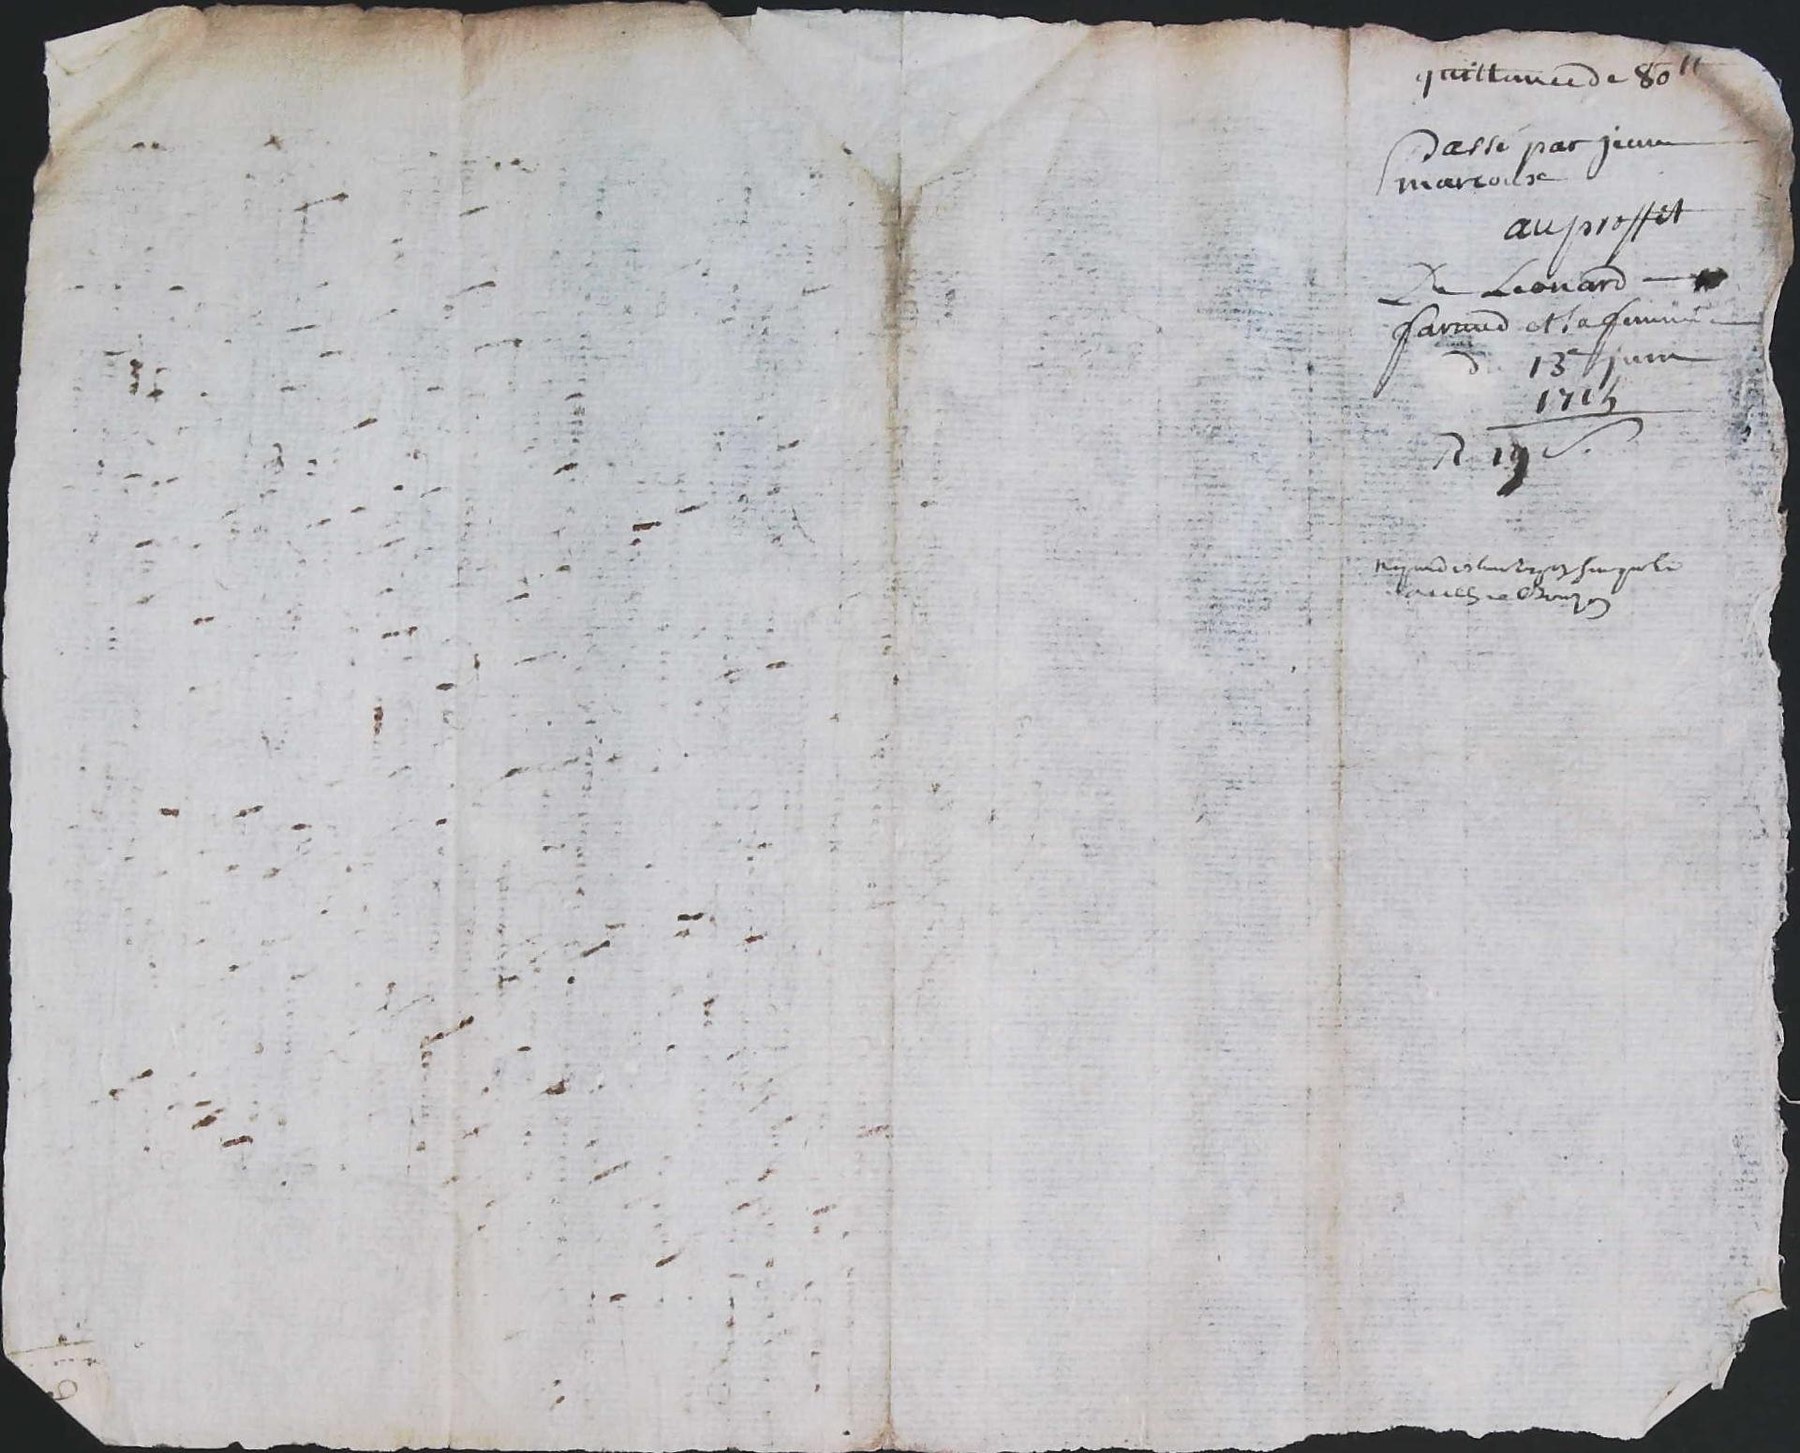 quittance de 80ˡˡ
passé par jean
marcoux
au proffit
De Leonard
faraud et sa femme
du 13ᵉ juin
1715
R 19 s.